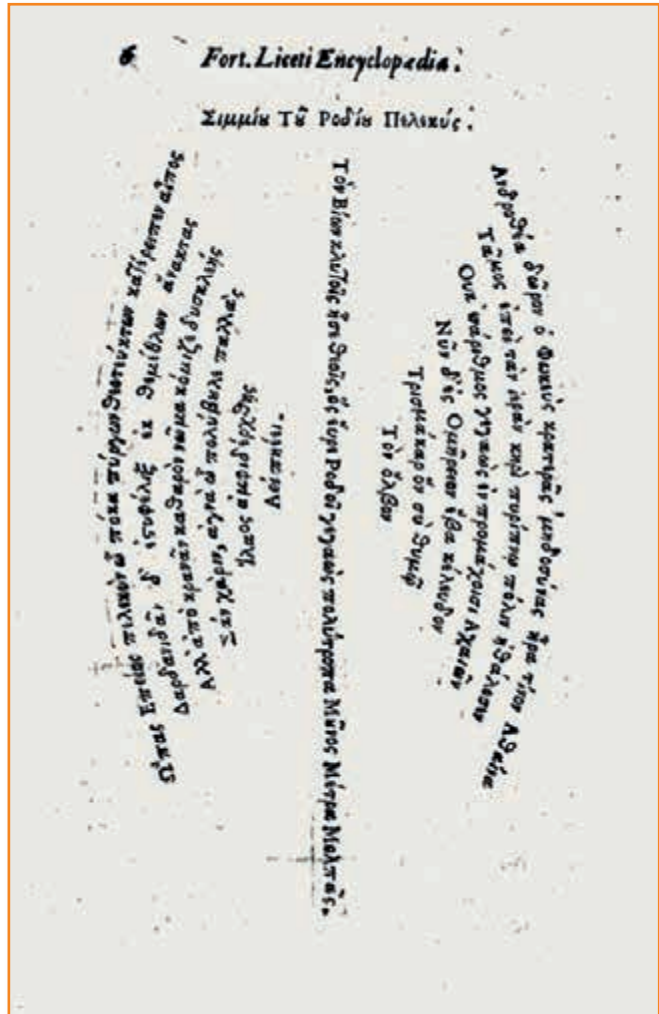 6 Fort. Liceti Encyclopædia.
Σιμμίου Τοῦ Ροδίου Πέλεκύς.
Ανδροθέα δῶρον ὁ Φωκεὺς κρατερᾶς μηδοσύνας ἦρα τίνων Αθάνα
Τᾶμος ἐπεὶ τὰν ἱερὰν κηρὶ πυρίπνῳ πόλιν ἠθάλωσεν
Οὐκ ἐνάριθμος γεγαὼς ἐν προμάχοισι Αχαιῶν
Νῦν δ' ἐς Ομήρειον ἔβα κέλευθον
Τρισμάκαρ ὃν σὺ θυμῷ
Τὸν ὄλβον
Τόν Βίον κλυτοῖς ἶσε θεοῖς, ὃς εὗρε Ροδου γεγαὼς πολύτροπα Μῶνος Μέτρα Μολπᾶς.
Αεὶ πνέει.
Ιλαος
χάριν, πολύβουλε παλλάς
Αλλ' ἀπὸ κρανᾶν καθαρὸν νᾶμα κόμιζε δυσκλεής
Δαρδανιδᾶν δ' ἐστυφέλιξ' ἐκ θεμέθλων ἄνακτας
Ωπασ Επειὸς πέλεκυν ᾧ ποκα πύργων θεοτεύκτων κατέρειψεν αἶπος